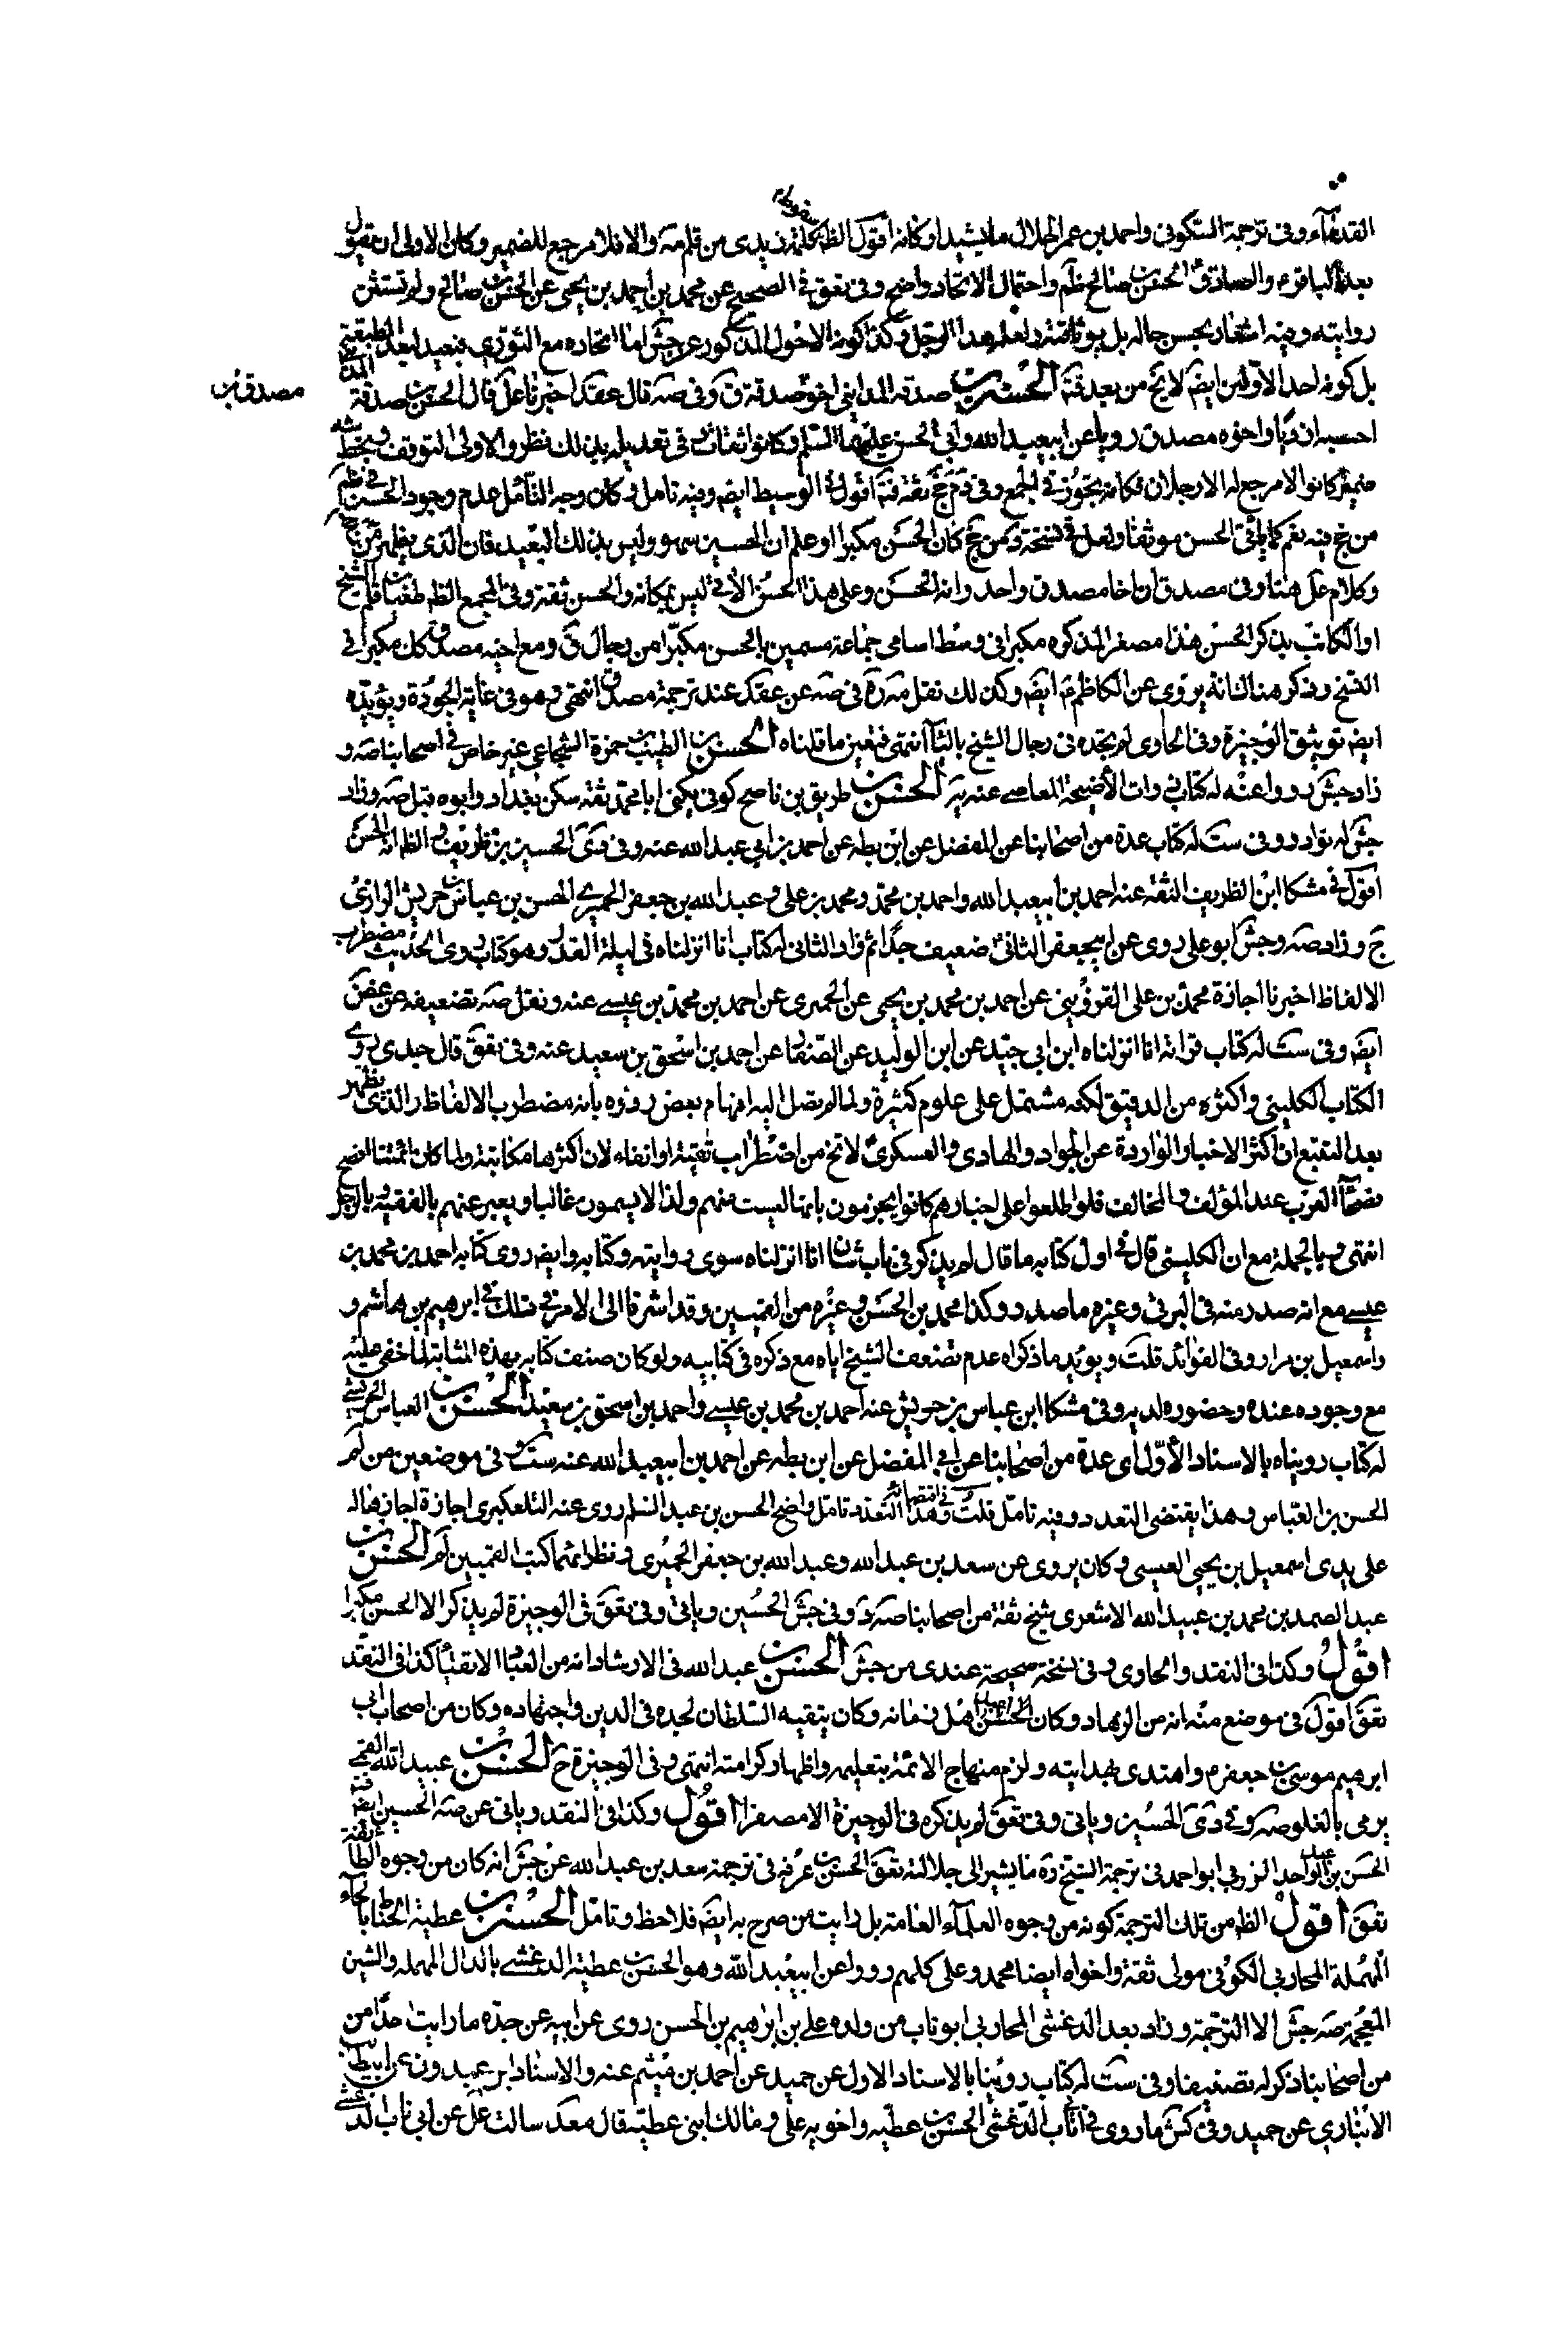 القدماء وفى ترجمة السكونى واحمد بن عمر الحلال ما يشيد اركانه اقول الظ كلمة زيدى من قلمه سهو والا فلا مرجع للضمير وكان الاولى ان يقول
بعد الباقر ع والصادق ع الحسن بن صالح ظم واحتمال الاتحاد واضح وفى تعق فى الصحيح عن محمد بن احمد بن يحيى عن الحسن بن صالح ولم تستثن
روايته وفيه اشعار بحسن حاله بل بوثاقته ولعله هذا الرجل وكذا كونه الاحول المذكور عن جش اما اتحاده مع الثورى فبعيد لبعد الطبقة
بل كونه احد الاولين ايض لا يخ من بعد فت الحسن بن صدقة المدايني اخوه صدقة ق وفى صه قال عقد اخبرنا عل قال الحسن بن صدقة المدايني
مصدق بن
احسبه ازديا واخوه مصدق رويا عن ابيعبد الله وابى الحسن عليهما السلم وكانوا ثقات وفى تعديله بذلك نظر والاولى التوقف وبخط شه
ضمير كانوا لا مرجع له الا رجلان فكانه تجوز فى الجمع وفى دم جخ ثقة فت اقول فى الوسيط ايض وفيه تامل وكان وجه التأمل عدم وجود الحسن فى ظم
من جخ فيه نعم كما ياتى الحسن موثقا ولعل فى نسخته من جخ كان الحسن مكبرا او علم ان الحسين سهو وليس بذلك البعيد فان الذى يظهر من جخ
وكلام عل هنا وفى مصدق ان اخا مصدق واحد وانه الحسن وعلى هذا الحسين الاتى ليس بمكانه والحسن ثقة وفى المجمع الظ طغيان قلم الشيخ
او الكاتب بذكر الحسن هذا مصغر المذكوره مكبرا فى وسط اسامى جماعة مسمين بالحسن مكبرا من رجال ق ومع اخيه مصدق كل مكبرا فى
الشيخ وذكر هناك انه يروى عن الكاظم ع ايض وكذلك نقل مه ره فى صه عن عقد عند ترجمة مصدق انتهى وهو فى غاية الجودة ويؤيده
ايض توثيق الوجيزة وفى الحاوى لم نجده فى رجال الشيخ بالثاء انتهى فتعين ما قلناه الحسن بن الطيب بن حمزة الشجاعى غير خاص فى اصحابنا صه و
زاد جش رووا عنه له كتاب ذوات الاضيحة المعاصى عنه به الحسن بن طريف بن ناصح كوفى يكنى ابا محمد ثقة سكن بغداد وابوه قبل صه وزاد
جش له نوادر وفى ست له كتاب عدة من اصحابنا عن المفضل عن ابن بطه عن احمد بن ابى عبد الله عنه وفى دى الحسين بن ظريف والظ انه الحسن
اقول فى مشكا ابن الظريف الثقة عنه احمد بن ابيعبد الله واحمد بن محمد ومحمد بن على وعبد الله بن جعفر الحميرى الحسن بن عباس بن حريش الرازى
ج وزاد صه وجش ابو على روى عن ابيجعفر الثانى ع ضعيف جدا ثم زاد الثانى له كتاب انا انزلناه فى ليلة القدر وهو كتاب ردى الحديث مضطرب
الالفاظ اخبرنا اجازة محمد بن على القزوينى عن احمد بن محمد بن يحيى عن الحميرى عن احمد بن محمد بن عيسى عنه ونقل صه تضعيفه عن غض
ايض وفى ست له كتاب ثواب قرائة انا انزلناه ابن ابى جيد عن ابن الوليد عن الصفار عن احمد بن اسحق بن سعيد عنه وفى تعق قال جدى روى
الكتاب الكلينى واكثره من الدقيق لكنه مشتمل على علوم كثيرة ولما لم يصل اليه افهام بعض ردوه بانه مضطرب الالفاظ والذى يظهر
بعد التتبع ان اكثر الاخبار الواردة عن الجواد والهادى والعسكرى ع لا تخ من اضطراب تقية او اتقاء لان اكثرها مكاتبة ولما كان ائمتنا افصح
فصحاء العرب عند المؤلف والمخالف فلو اطلعوا على اخبارهم كانوا يجزمون بانها ليست منهم ولذا لا يسمون غالبا ويعبر عنهم بالفقيه والرجل
انتهى وبالجملة مع ان الكلينى قال فى اول كتابه ما قال لم يذكر فى باب شان انا انزلناه سوى روايته وكتابه وايض روى كتابه احمد بن محمد بن
عيسى مع انه صدر منه فى البرقى وغيره ما صدر وكذا محمد بن الحسن وغيره من القميين وقد اشرنا الى الامر فى ذلك فى ابرهيم بن هاشم و
واسمعيل بن مرار وفى الفوائد قلت ويؤيد ما ذكراه عدم تضعيف الشيخ اياه مع ذكره فى كتابيه ولو كان صنف كتابه بهذه المثابة لما خفى عليه
مع وجوده عنده وحضوره لديه وفى مشكا ابن عباس بن حريش عنه احمد بن محمد بن عيسى واحمد بن اسحق بن سعيد الحسن بن العباس الحريشى
له كتاب رويناه بالاسناد الاول اى عدة من اصحابنا عن ابى المفضل عن ابن بطه عن احمد بن ابيعبد الله عنه ست وفى موضعين من لم
الحسن بن العباس وهذا يقتضى التعدد وفيه تامل قلت وهذا فى اقتضائه التعدد تامل واضح الحسن بن عبد السلم روى عنه التلعكبرى اجازة اجازها له
على يدى اسمعيل بن يحيى العبسى وكان يروى عن سعد بن عبد الله وعبد الله بن جعفر الحميرى ونظرائهما كتب القميين لم الحسن بن
عبد الصمد بن محمد بن عبيد الله الاشعرى شيخ ثقة من اصحابنا صه د وفى جش الحسين وياتى وفى تعق فى الوجيزة لم يذكر الا الحسن مكبرا
اقول وكذا فى النقد والحاوى وفى نسخة صحيحة عندى من جش الحسن بن عبد الله فى الارشاد انه من العباد الاتقياء كذا فى النقد
تعق اقول فى موضع منه انه من الزهاد وكان الحسن اعبد اهل زمانه وكان يتقيه السلطان لجده فى الدين واجتهاده وكان من اصحاب ابى
ابرهيم موسى بن جعفر ع واهتدى بهدايته ولزم منهاج الائمة بتعليمه واظهار كرامته انتهى وفى الوجيزة ح الحسن بن عبيد الله القمى
يرمى بالغلو صه وفى دى الحسين وياتى وفى تعق لم يذكره فى الوجيزة الا مصغرا اقول وكذا فى النقد وياتى عن صه الحسين ايض فت
الحسن بن عبد الواحد الزربى ابو احمد فى ترجمة الشيخ ره ما يشير الى جلالته تعق الحسن بن عرفه فى ترجمة سعد بن عبد الله عن جش انه كان من وجوه الطائفة
تعق اقول الظ من تلك الترجمة كونه من وجوه العلماء العامة بل رايت من صرح به ايض فلاحظ وتامل الحسن بن عطية الحناط بالحاء
المهملة المحاربى الكوفى مولى ثقة واخواه ايضا محمد وعلى كلهم رووا عن ابيعبد الله وهو الحسن بن عطية الدغشى بالدال المهملة والشين
المعجمة صه جش الا الترجمة وزاد بعد الدغشى المحاربى ابو ناب من ولده على بن ابرهيم بن الحسن روى عن ابيه عن جده ما رايت احدا من
من اصحابنا ذكر له تصنيفا وفى ست له كتاب روينا بالاسناد الاول عن حميد عن احمد بن ميثم عنه والاسناد ابن عبدون عن ابيطالب
الانبارى عن حميد وفى كش ما روى فى ناب الدغشى الحسن بن عطيه واخويه على ومالك ابنى عطيه قال معد سالت عل عن ابى ناب الدغشى